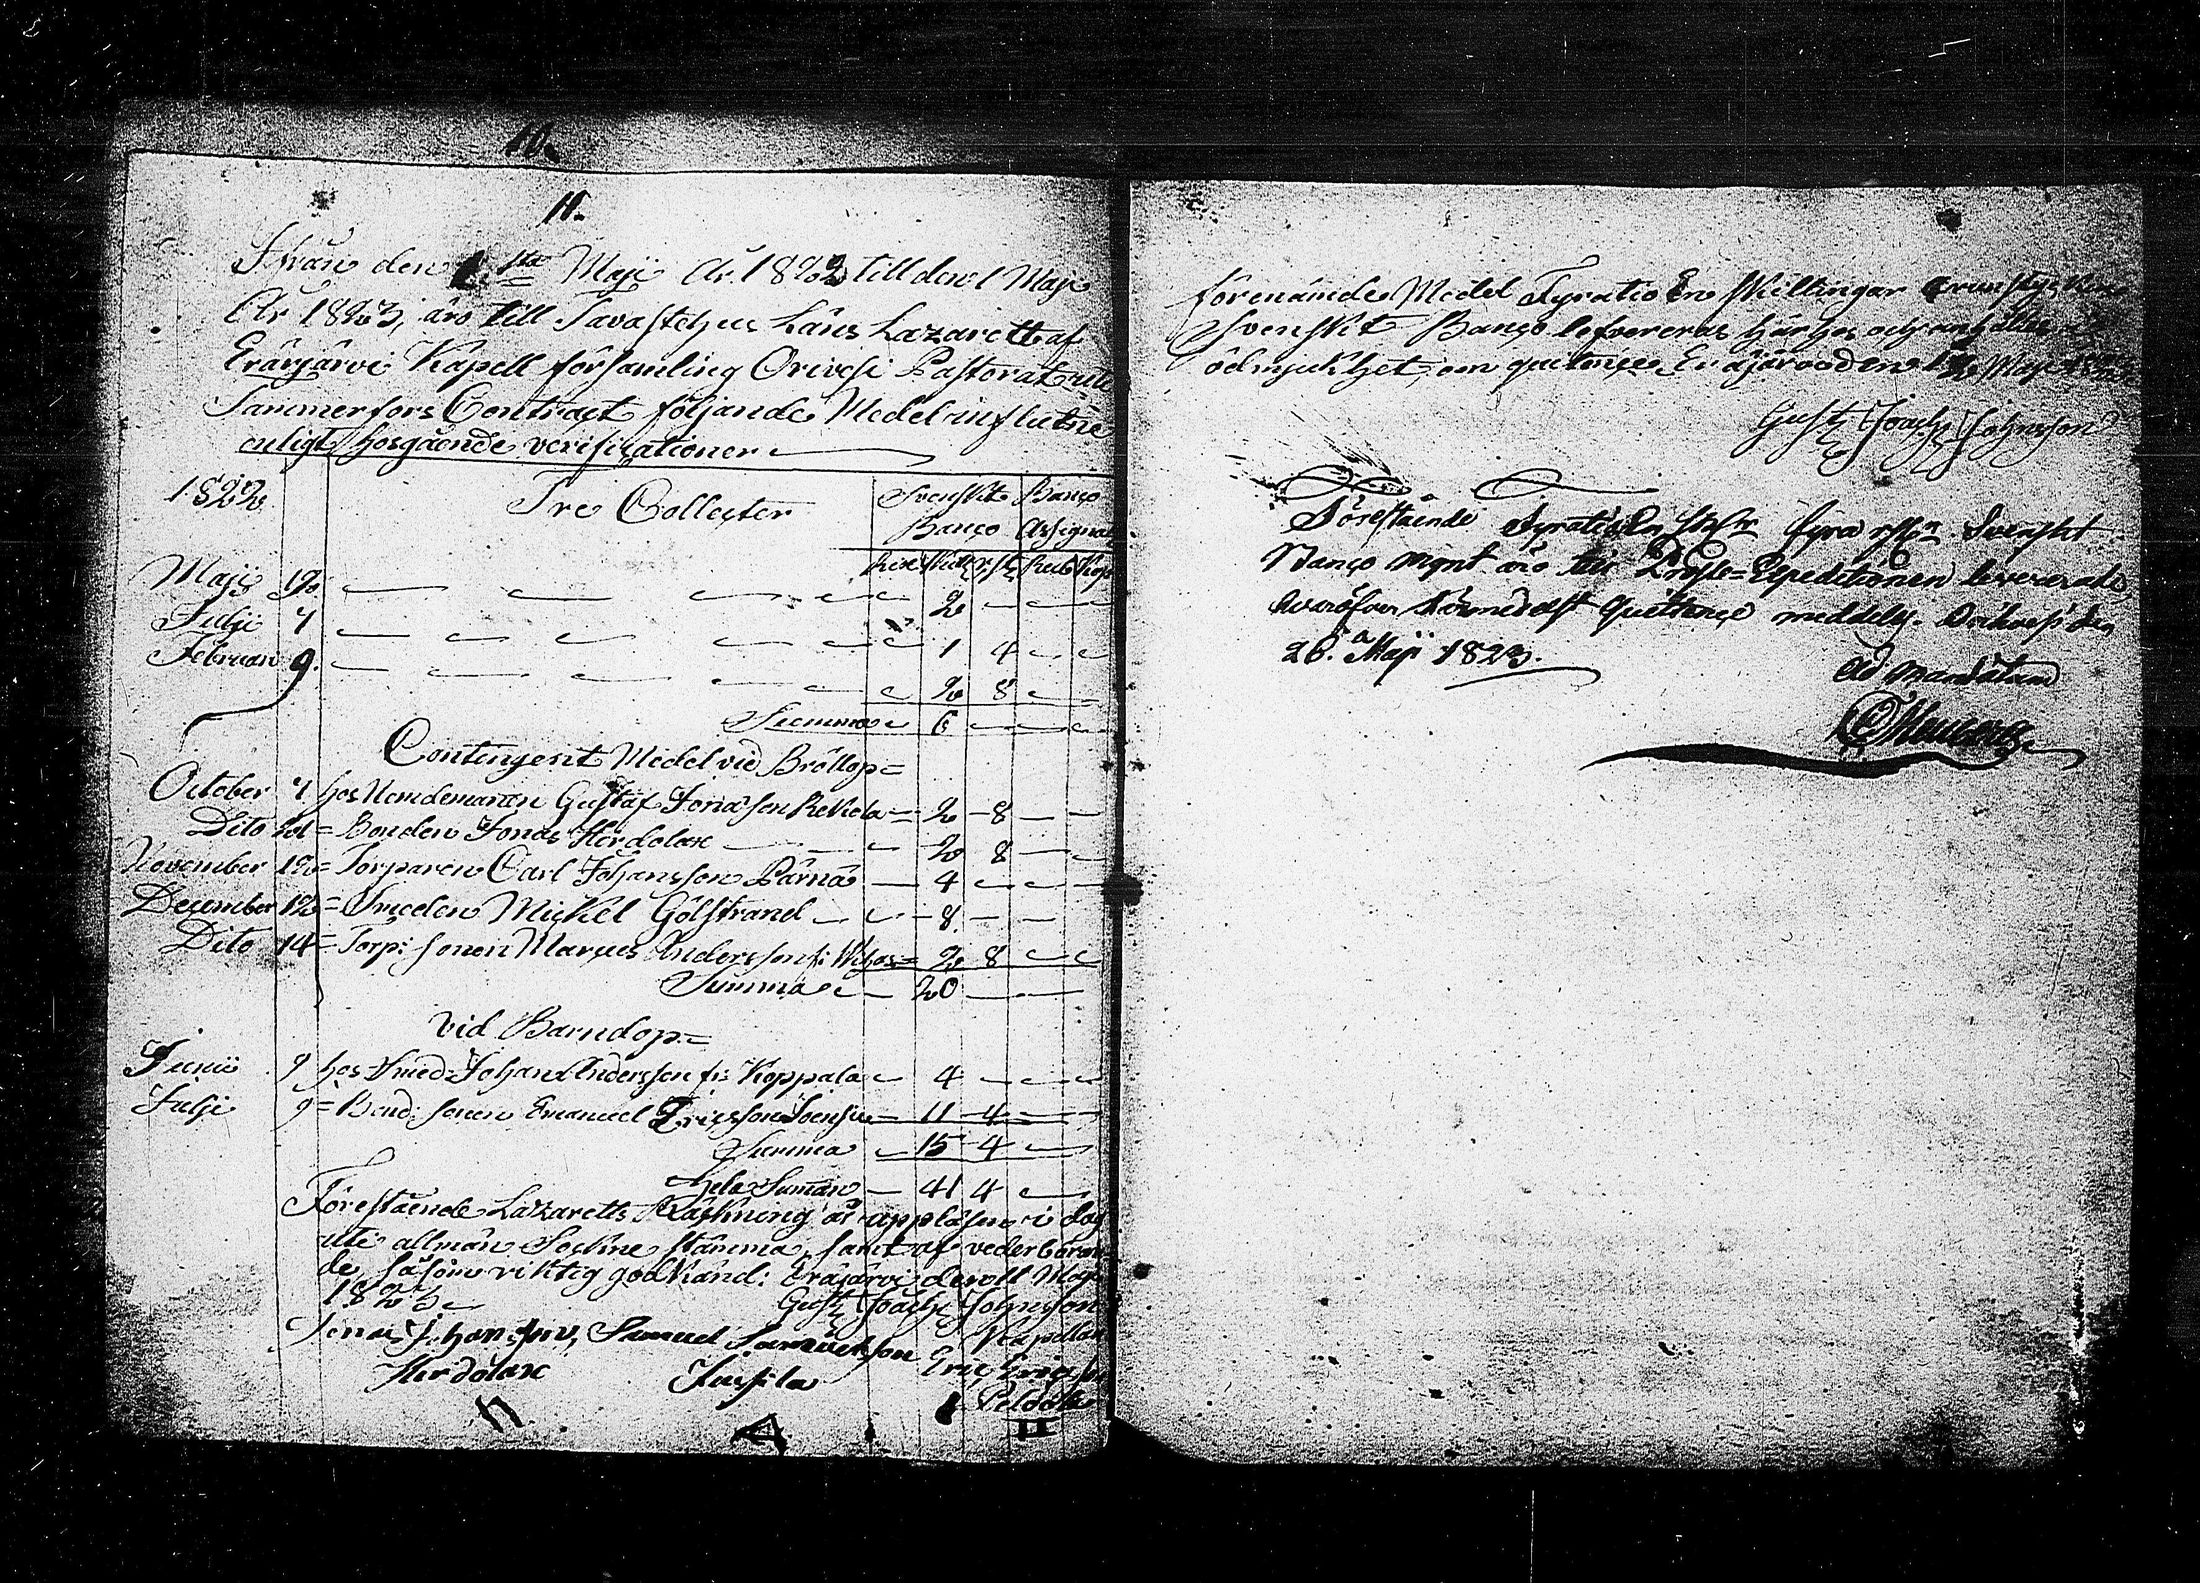 10.
11.
Ifrån den 1sta Maji År 1822 till den 1 Maji
År 1823, äro till Tavastehus Läns Lazarett af
Eräjärvi Kapell församling Orivesi Pastorat uti
Tammerfors Contract följande Medel influtne
enligt hosgående verificationer
1822 Tre Collecter Svenskt Banco
Banco Assignat.
Rixd Skill rst Rub Kop
Maji 12 — — — — — 2 — — —
Julji 7 — — — — — 1 4 — —
Februari 9. — — — — — 2 8 — —
Summa — 6 — — —
Contingent Medel vid Bröllop =
October 4 hos Nemdemannen Gustaf Jonasson Rekola = 2 — 8 — —
Dito = Bonden Jonas Herdolax — — — 2 8 — —
November 12 = Torparen Carl Johansson Pärnä — 4 — — —
December 12 = Smeden Mickel Gölstrand — — 8. — —
Dito 14 = Torp: sonen Marcus Andersson fr: = 2 8 — —
Summa — 20 — —
vid Barndop =
Junii 9 hos Smed: Johan Andersson fr: Koppala — 4 — — —
Julji 9 = Bond: sonen Emanuel Ericsson = 11 — 4 — —
Summa — 15 — 4 —
Hela Summan — 41 4 —
Förestående Lazaretts Räkning är uppläsen i dag
uti allmän Sockne stämma, samt af vederböran-
de såsom riktig godkänd: Eräjärvi den 11 Maji
1823 — Gust Joach Johnsson
Jonas Johansson, Samuel Samuelsson Kapellan
Herdolax Jussila Eric Ericsson
Peldola
förenämde Medel Fyratio En Skillingar
Svenskt Banco lefvereras härhos och anhålles i
ödmjukhet, om quitence, Eräjärvi den 12 Maji 1823
Gust Joach Johnsson
Förestående Fyratio En sk fyra rst. Svenskt
Banco mynt äro till Prosts=Expeditionen levererade,
hvaröfver härmedelst Quittence meddeles. Orihvesi den
26. Maji 1823.
Ad mandatum